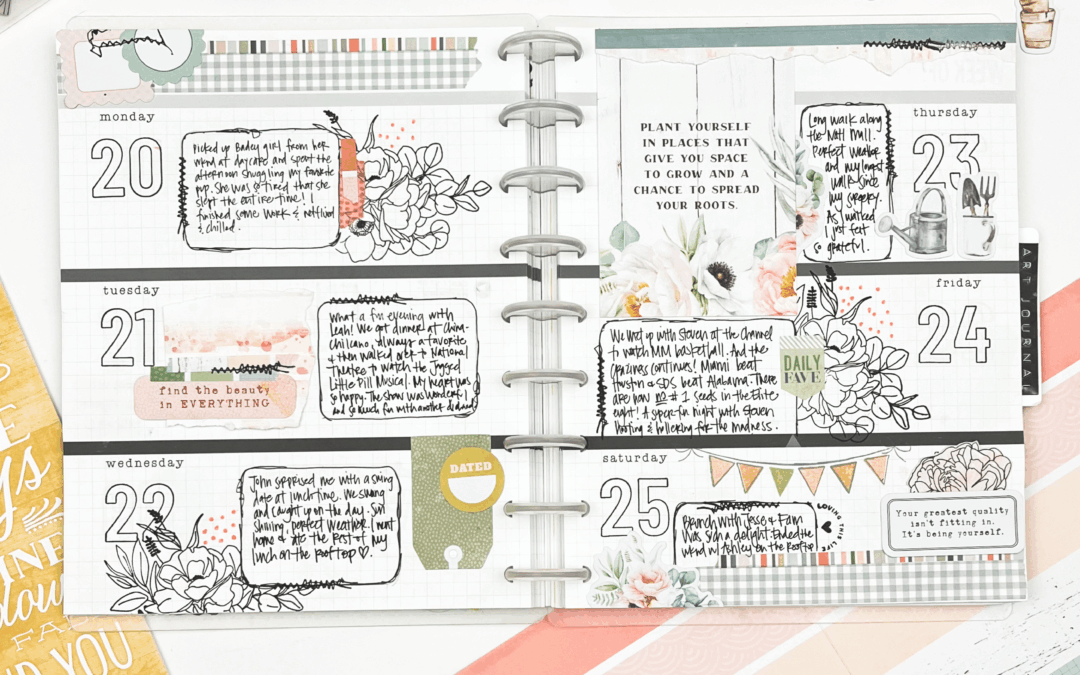 monday
20
Picked up Badey girl from her
wknd at daycare and spent the
afternoon snuggling my favorite
pup. She was so tired that she
slept the entire time! I
finished some work & netflixed
& chilled.
tuesday
21
find the beauty
in EVERYTHING
What a fun evening with
Leah! We got dinner at China-
Chilcano, always a favorite
& then walked over to National
Theatre to watch the Jagged
Little Pill Musical. My heart was
so happy. The show was wonderful
and so much fun with another
wednesday
22
John surprised me with a swing
date at lunchtime. We swung
and caught up on the day. Sun
shining, perfect weather. I went
home & ate the rest of my
lunch on the rooftop ♡.
DATED
PLANT YOURSELF
IN PLACES THAT
GIVE YOU SPACE
TO GROW AND A
CHANCE TO SPREAD
YOUR ROOTS.
thursday
23
Long walk along
the Natl Mall.
Perfect weather
and my longest
walk since
my surgery.
As I walked
I just felt
so grateful.
friday
24
We met up with Steven at the Channel
to watch MM basketball. And the
craziness continues! Miami beat
Houston & SDS beat Alabama. There
are now no #1 seeds in the Elite
eight! A super fun night with Steven
hooting & hollering for the madness.
DAILY
FAVE
saturday
25
Brunch with Jesse & Fam
was such a delight. Ended the
wknd w/ Ashley on the rooftop!
LOVING THIS LIFE
Your greatest quality
isn't fitting in.
It's being yourself.
ART JOURNAL
YOU